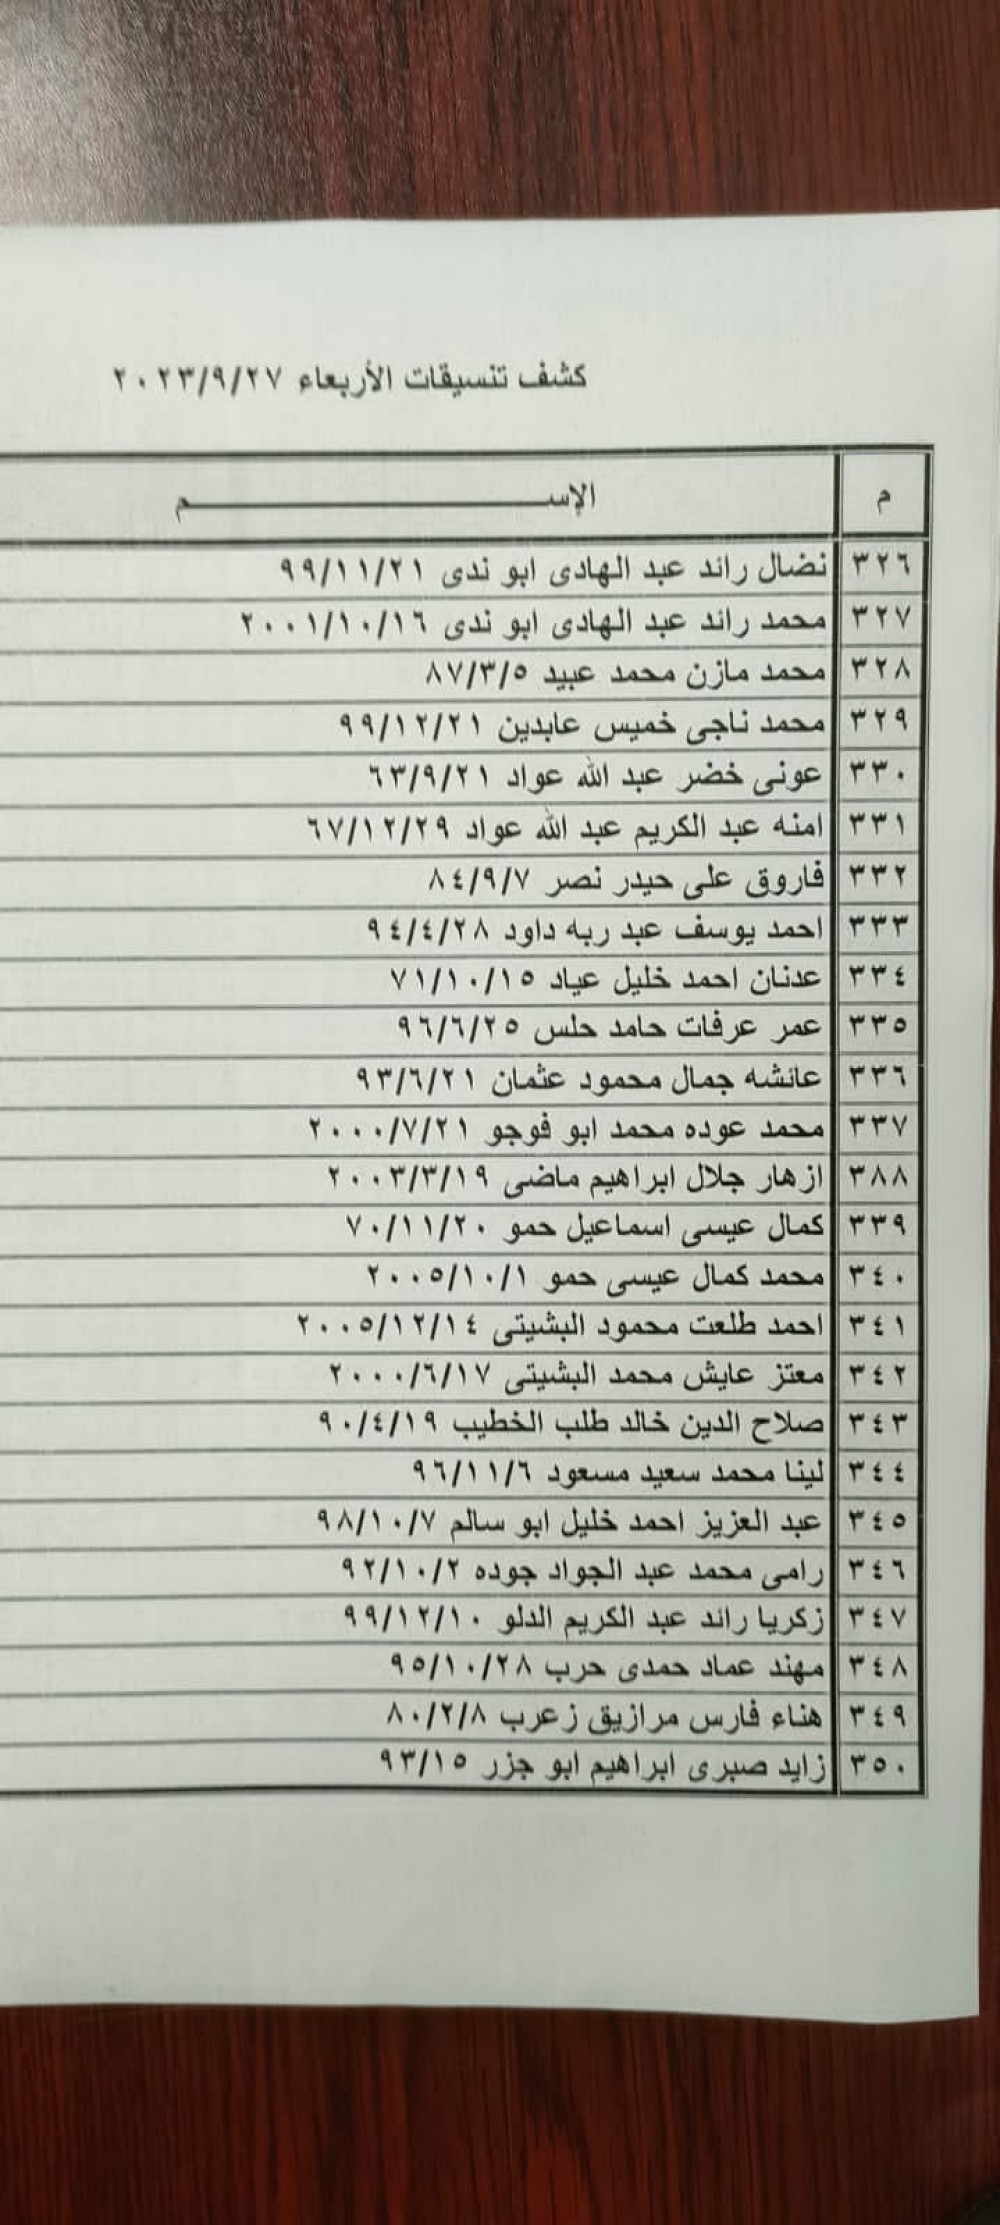 كشف تنسيقات الأربعاء ٢٠٢٣/٩/٢٧
م الإســــــم
٣٢٦ نضال رائد عبد الهادى ابو ندى ٩٩/١١/٢١
٣٢٧ محمد رائد عبد الهادى ابو ندى ٢٠٠١/١٠/١٦
٣٢٨ محمد مازن محمد عبيد ٨٧/٣/٥
٣٢٩ محمد ناجى خميس عابدين ٩٩/١٢/٢١
٣٣٠ عونى خضر عبد الله عواد ٦٣/٩/٢١
٣٣١ امنه عبد الكريم عبد الله عواد ٦٧/١٢/٢٩
٣٣٢ فاروق على حيدر نصر ٨٤/٩/٧
٣٣٣ احمد يوسف عبد ربه داود ٩٤/٤/٢٨
٣٣٤ عدنان احمد خليل عياد ٧١/١٠/١٥
٣٣٥ عمر عرفات حامد حلس ٩٦/٦/٢٥
٣٣٦ عائشه جمال محمود عثمان ٩٣/٦/٢١
٣٣٧ محمد عوده محمد ابو فوجو ٢٠٠٠/٧/٢١
٣٨٨ ازهار جلال ابراهيم ماضى ٢٠٠٣/٣/١٩
٣٣٩ كمال عيسى اسماعيل حمو ٧٠/١١/٢٠
٣٤٠ محمد كمال عيسى حمو ٢٠٠٥/١٠/١
٣٤١ احمد طلعت محمود البشيتى ٢٠٠٥/١٢/١٤
٣٤٢ معتز عايش محمد البشيتى ٢٠٠٠/٦/١٧
٣٤٣ صلاح الدين خالد طلب الخطيب ٩٠/٤/١٩
٣٤٤ لينا محمد سعيد مسعود ٩٦/١١/٦
٣٤٥ عبد العزيز احمد خليل ابو سالم ٩٨/١٠/٧
٣٤٦ رامى محمد عبد الجواد جوده ٩٢/١٠/٢
٣٤٧ زكريا رائد عبد الكريم الدلو ٩٩/١٢/١٠
٣٤٨ مهند عماد حمدى حرب ٩٥/١٠/٢٨
٣٤٩ هناء فارس مرازيق زعرب ٨٠/٢/٨
٣٥٠ زايد صبرى ابراهيم ابو جزر ٩٣/١٥